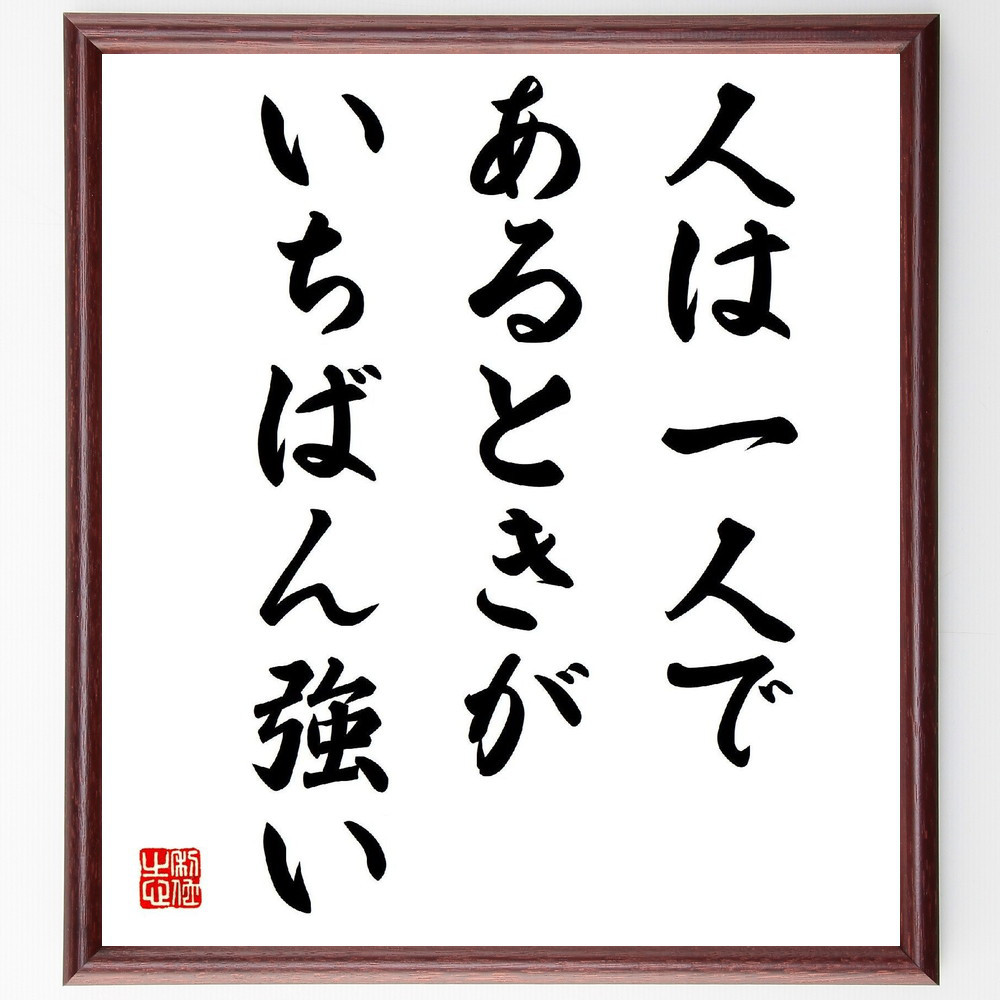 人は一人で
あるときが
いちばん強い